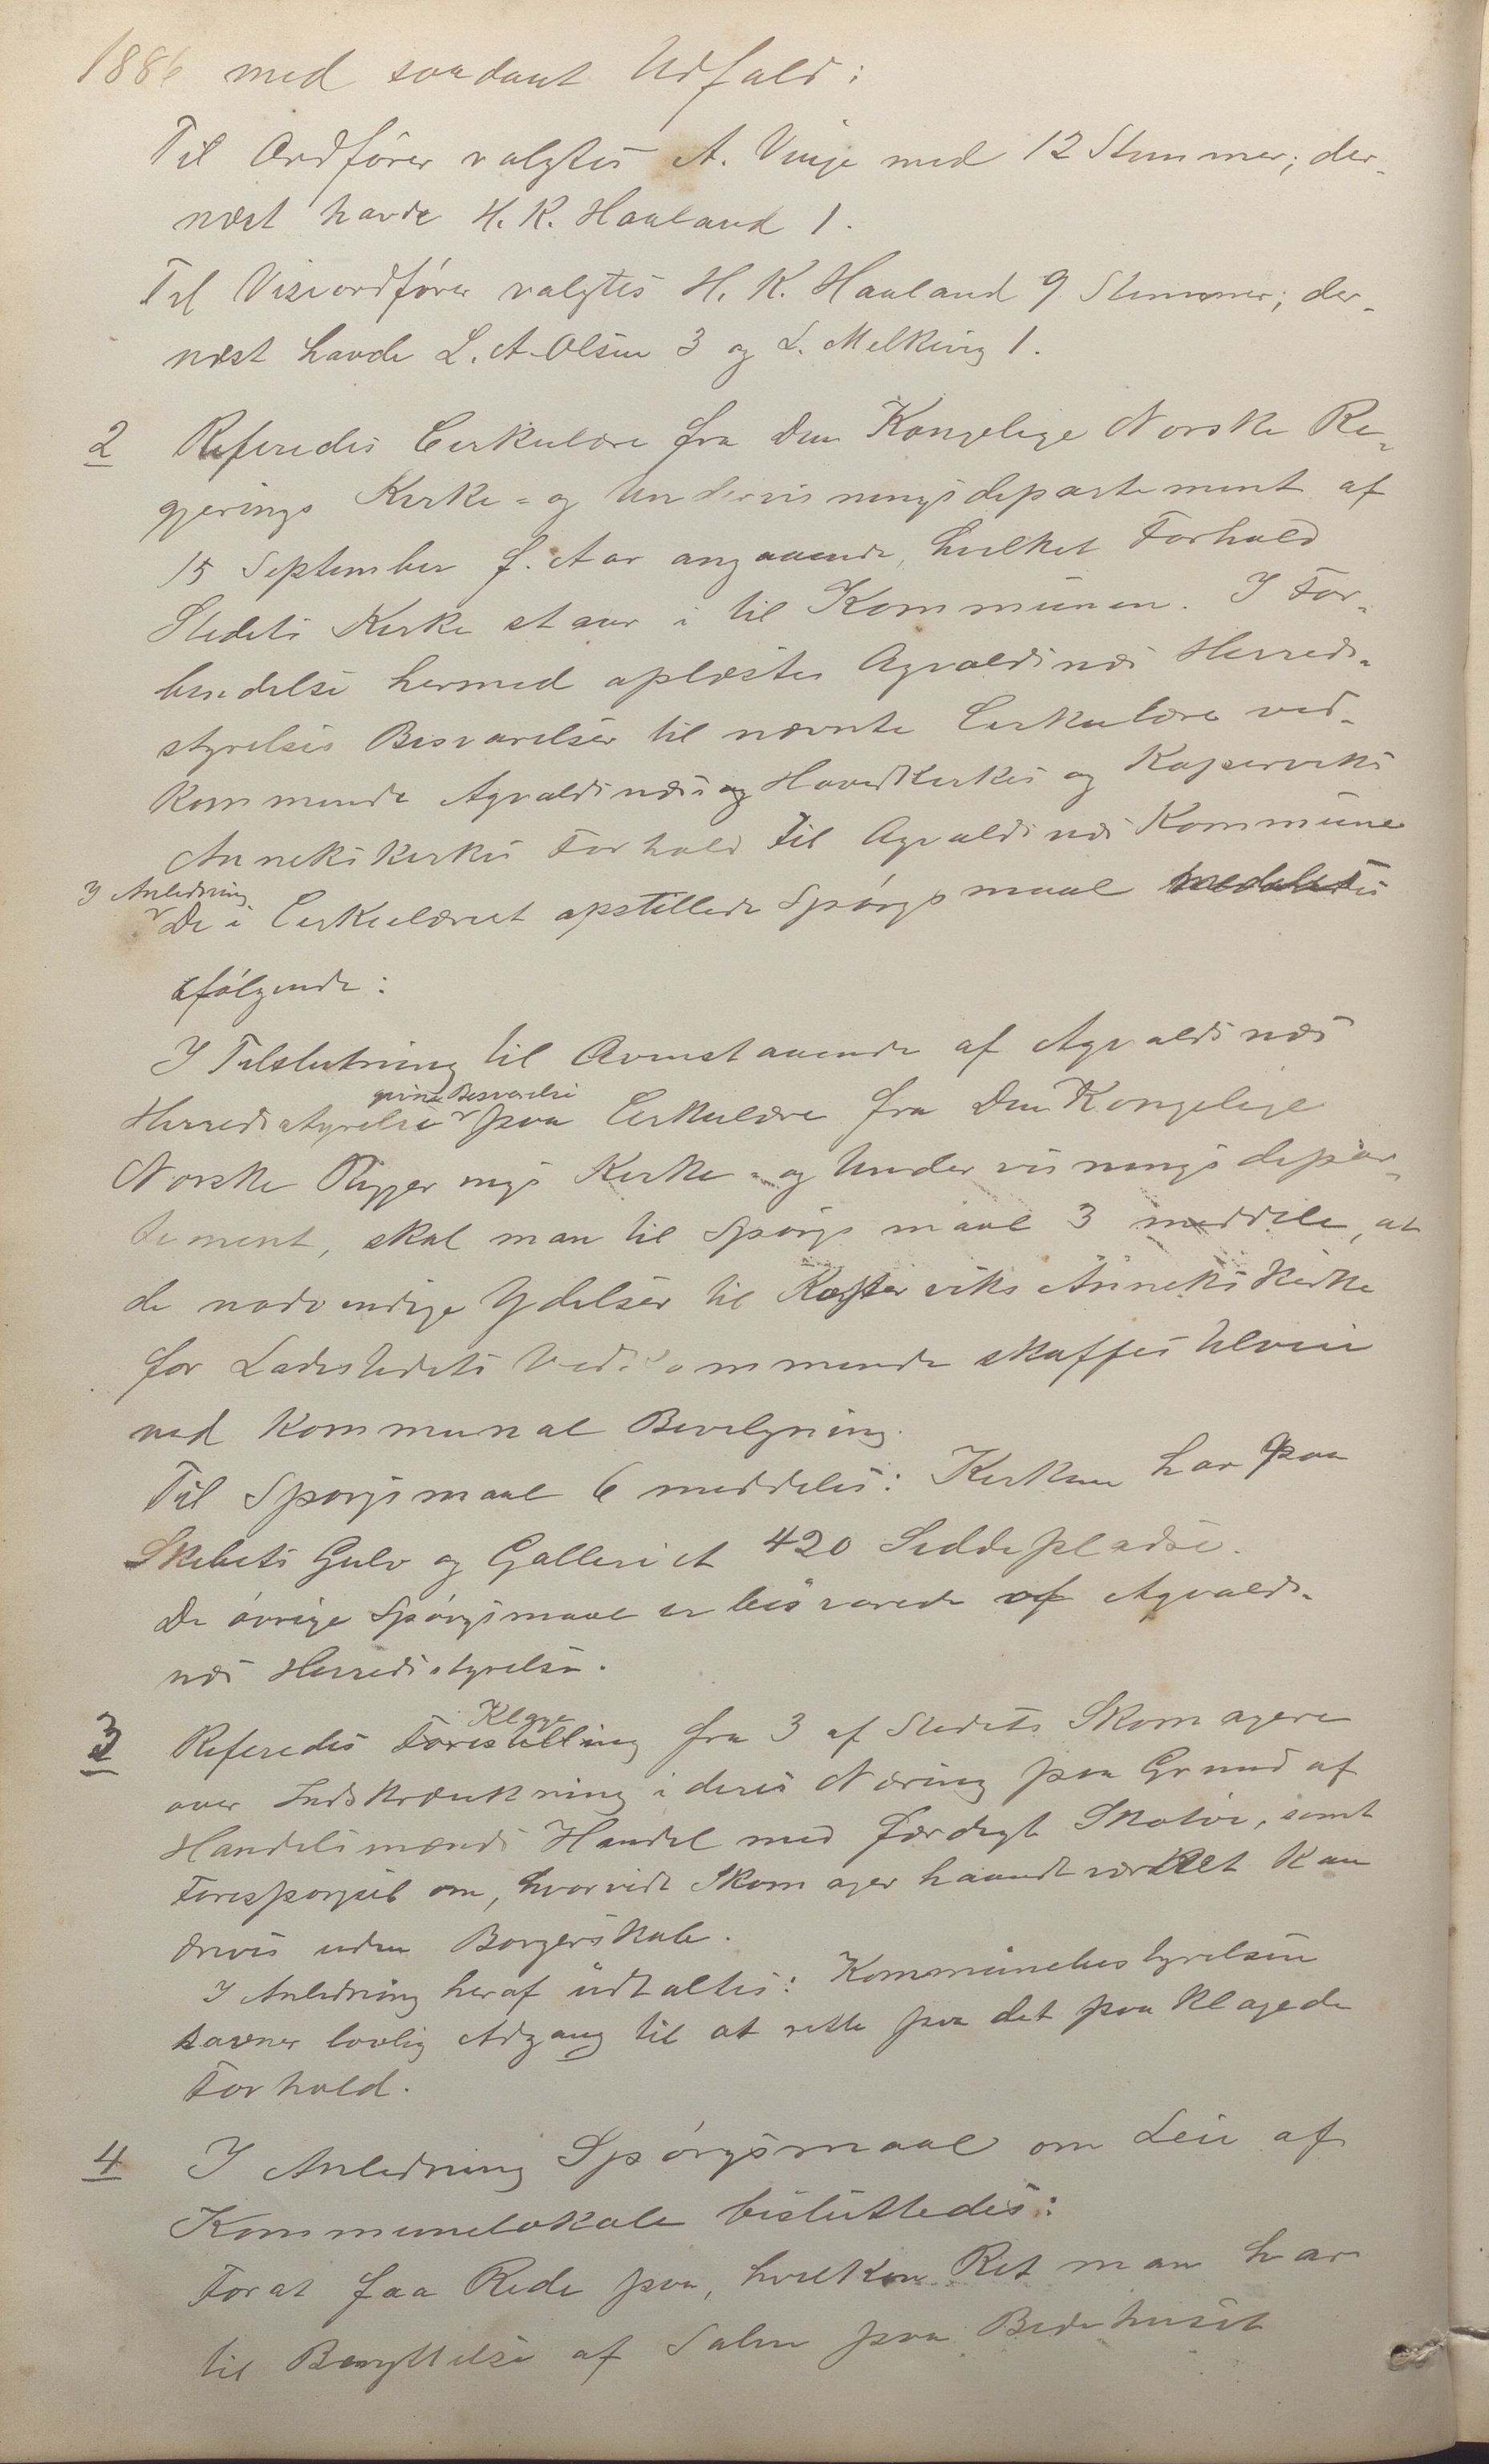 1886 med saadant Udfald:
Til Ordfører valgtes A. Vinje med 12 Stemmer; der-
næst havde H. K. Haaland 1.
Til Viseordfører valgtes H. K. Haaland 9 Stemmer; der-
næst havde L. A. Olsen 3 og L. Melkevig 1.
2 Referedes Cirkulære fra Den Kongelige Norske Re-
gjerings Kirke- og Undervisningsdepartement af
15 September f. Aar angaaende, hvilket Forhold
Stedets Kirke staar i til Kommunen. I For-
bindelse hermed oplæstes Agvaldsnæs Herreds-
styrelses Besvarelser til nævnte Cirkulære ved-
kommende Agvaldsnæs og Hovedkirkes og Koperviks
Annekskirkes Forhold til Agvaldsnæs Kommune
I Anledning
De i Cirkulæret opstillede Spørgsmaal meddeltes
følgende:
I Tilslutning til Ovenstaaende af Agvaldsnæs
givne Besvarelse
Herredsstyrelse paa Cirkulære fra Den Kongelige
Norske Regjerings Kirke- og Undervisningsdepar-
tement, skal man til Spørgsmaal 3 meddele, at
de nødvendige Ydelser til Koperviks Annekskirke
for Ladestedets Vedkommende skaffes tilveie
ved Kommunal Bevilgning.
Til Spørgsmaal 6 meddeles: Kirken har paa
Skibets Gulv og Galleriet 420 Siddepladse.
De øvrige Spørgsmaal er besvarede af Agvalds-
næs Herredsstyrelse.
Klage
3 Referedes Forestilling fra 3 af Stedets Skomagere
over Indskrænkning i deres Næring paa Grund af
Handelsmænds Handel med færdigt Skotøi, samt
Forespørgsel om, hvorvidt Skomagerhaandtværket kan
drives uden Borgerskab.
I Anledning heraf udtaltes: Kommunebestyrelsen
savner lovlig Adgang til at rette paa det paaklagede
Forhold.
4 I Anledning Spørgsmaal om Leie af
Kommunelokale besluttedes:
For at faa Rede paa, hvilken Ret man har
til Benyttelse af Salen paa Bedehuset